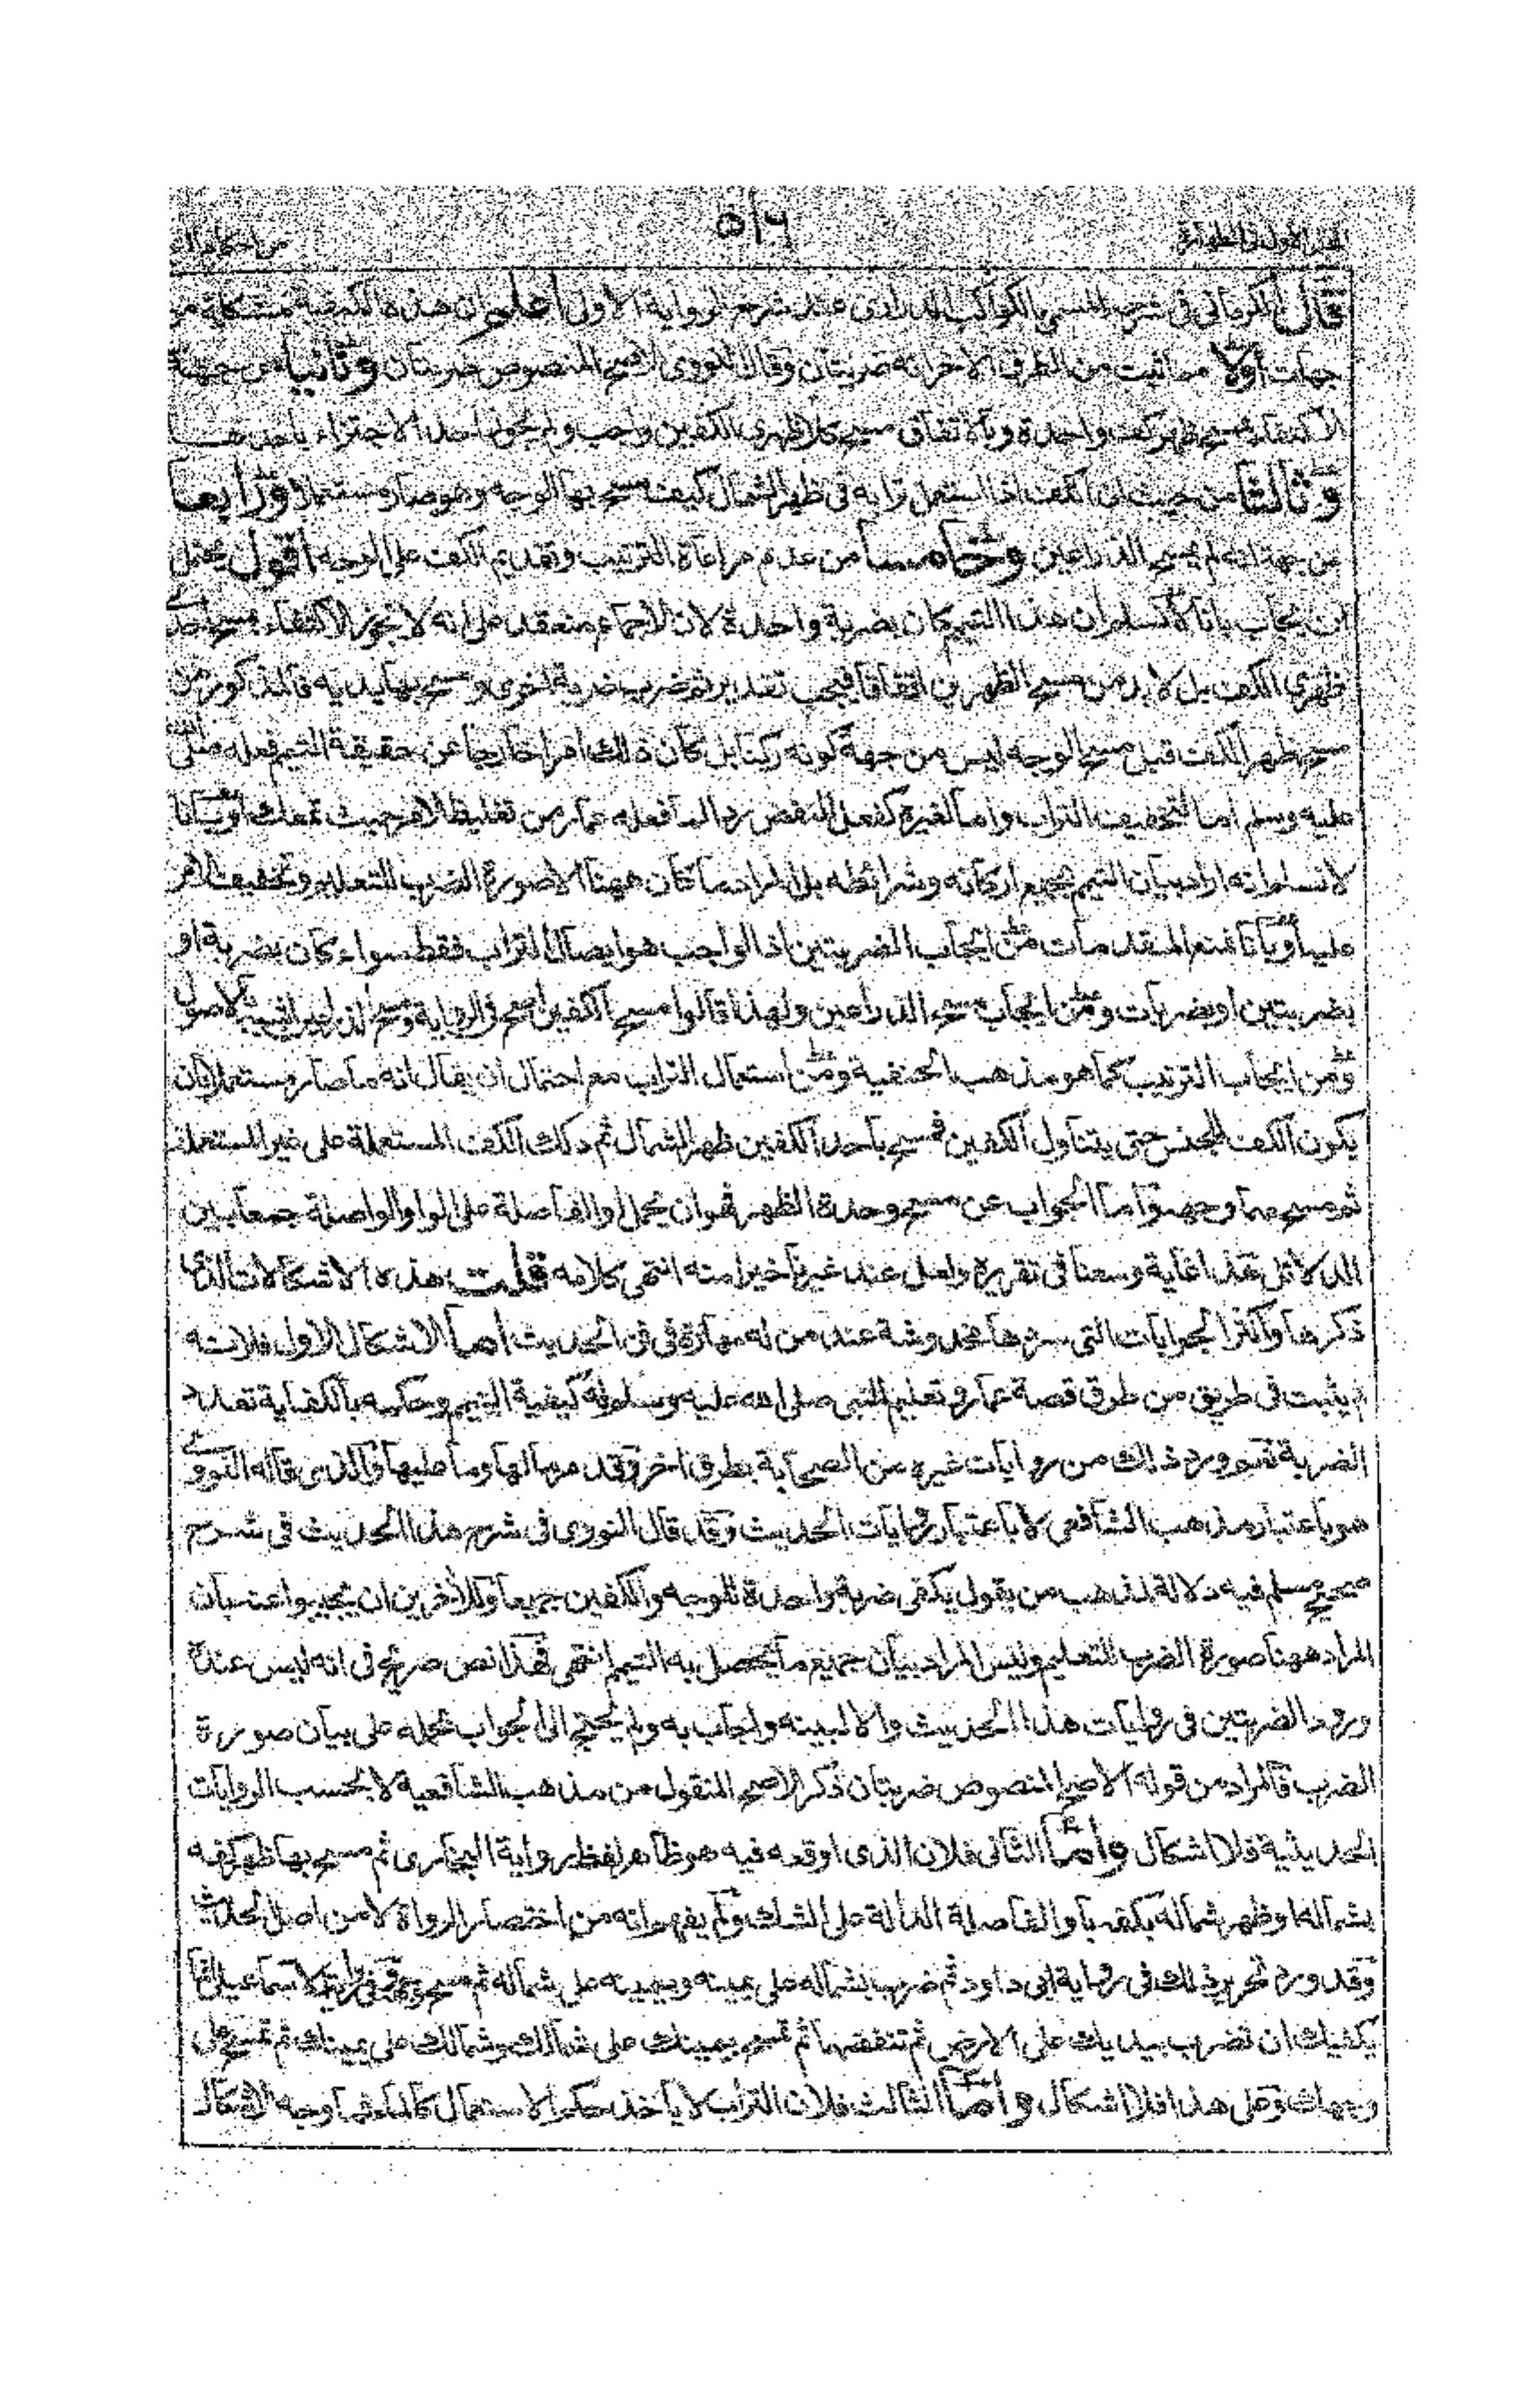 ٥١٦
قال الكرماني في شرحه المسمى بالكواكب الدراري عند شرح الرواية الاولى اعلم ان هذه الكيفية مشكلة من
جهات اولا مما ثبت من الطرق الاخر انه ضربتان وقال النووي الاصح المنصوص ضربتان وثانيا من جهة
الاكتفاء بمسح ظهر كف واحدة وبالاتفاق مسح كلا ظهري الكفين واجب ولم يجوز احد الاجتزاء باحدهما
وثالثا من حيث ان الكف اذا استعمل ترابه في ظهر الشمال كيف مسح بها الوجه وهو صار مستعملا ورابعا
من جهة انه لم يمسح الذراعين وخامسا من عدم مراعاة الترتيب وتقديم الكف على الوجه اقول يحتمل
ان يجاب بانا لا نسلم ان هذا التيمم كان بضربة واحدة لان الاجماع منعقد على انه لا يجوز الاكتفاء بمسح احد
ظهري الكف بل لا بد من مسح الظهرين اتفاقا فيجب تقدير ثم ضرب ضربة اخرى ومسح بها يديه فالمذكور من
مسح ظهر الكف قبل مسح الوجه ليس من جهة كونه ركنا بل كان ذلك امرا خارجا عن حقيقة التيمم فعله صلى الله
عليه وسلم اما لتخفيف التراب واما لغيره كفعل النفض ردا لما فعله عمار من تغليظ الامر حيث تمعك اوبانا
لا نسلم انه اراد بيان التيمم بجميع اركانه وشرائطه بل المراد ما كان ههنا الا صورة الضرب للتعليم وتخفيف الامر
عليه اوبانا نمنع المقدمات من ايجاب الضربتين اذ الواجب هو ايصال التراب فقط سواء كان بضربة او
بضربتين او بضربات ومن ايجاب مسح الذراعين ولهذا قالوا مسح الكفين اصح في الرواية ومسح الذراعين اشبه بالاصول
ومن ايجاب الترتيب كما هو مذهب الحنفية ومن استعمال التراب مع احتمال ان يقال انه ما صار مستعملا بان
يكون الكف للجنس حتى يتناول الكفين فمسح باحد الكفين ظهر الشمال ثم دلك الكف المستعملة على غير المستعملة
ثم مسح بهما وجهه واما الجواب عن مسح وحدة الظهر فهو ان يحمل او الفاصلة على الواو الواصلة جمعا بين
الدلائل هذا غاية وسعنا في تقريره ولعل عند غيرنا خيرا منه انتهى كلامه قلت هذه الاشكالات التي
ذكرها واكثر الجوابات التي سردها مخدوشة عند من له مهارة في فن الحديث اما الاشكال الاول فلانه
لم يثبت في طريق من طرق قصة عمار وتعليم النبي صلى الله عليه وسلم له كيفية التيمم وحكمه بالكفاية تعدد
الضربة نعم ورد ذلك من روايات غيره من الصحابة بطرق اخر وقد مر ما لها وما عليها والذي قاله النووي
هو باعتبار مذهب الشافعي لا باعتبار روايات الحديث وقد قال النووي في شرح هذا الحديث في شرح
صحيح مسلم فيه دلالة لمذهب من يقول يكفي ضربة واحدة للوجه والكفين جميعا وللآخرين ان يجيبوا عنه بان
المراد ههنا صورة الضرب للتعليم وليس المراد بيان جميع ما يحصل به التيمم انتهى فهذا نص صريح في انه ليس عنده
ورود الضربتين في روايات هذا الحديث والا لبينه واجاب به ولم يحتج الى الجواب بحمله على بيان صورة
الضرب فالمراد من قوله الاصح المنصوص ضربتان ذكر الاصح المنقول من مذهب الشافعية لا بحسب الروايات
الحديثية فلا اشكال واما الثاني فلان الذي اوقعه فيه هو ظاهر لفظ رواية البخاري ثم مسح بها ظهر كفه
بشماله او ظهر شماله بكفه باو الفاصلة الدالة على الشك ولم يفهم انه من اختصار الرواة لا من اصل الحديث
وقد ورد تحرير ذلك في رواية ابي داود ثم ضرب بشماله على يمينه وبيمينه على شماله ثم مسح وجهه وفي رواية الاسماعيلي انما
يكفيك ان تضرب بيديك على الارض ثم تنفضهما ثم تمسح بيمينك على شمالك وشمالك على يمينك ثم تمسح على
وجهك وعلى هذا فلا اشكال واما الثالث فلان التراب لا ياخذ حكم الاستعمال كالماء فما وجه الاشكال